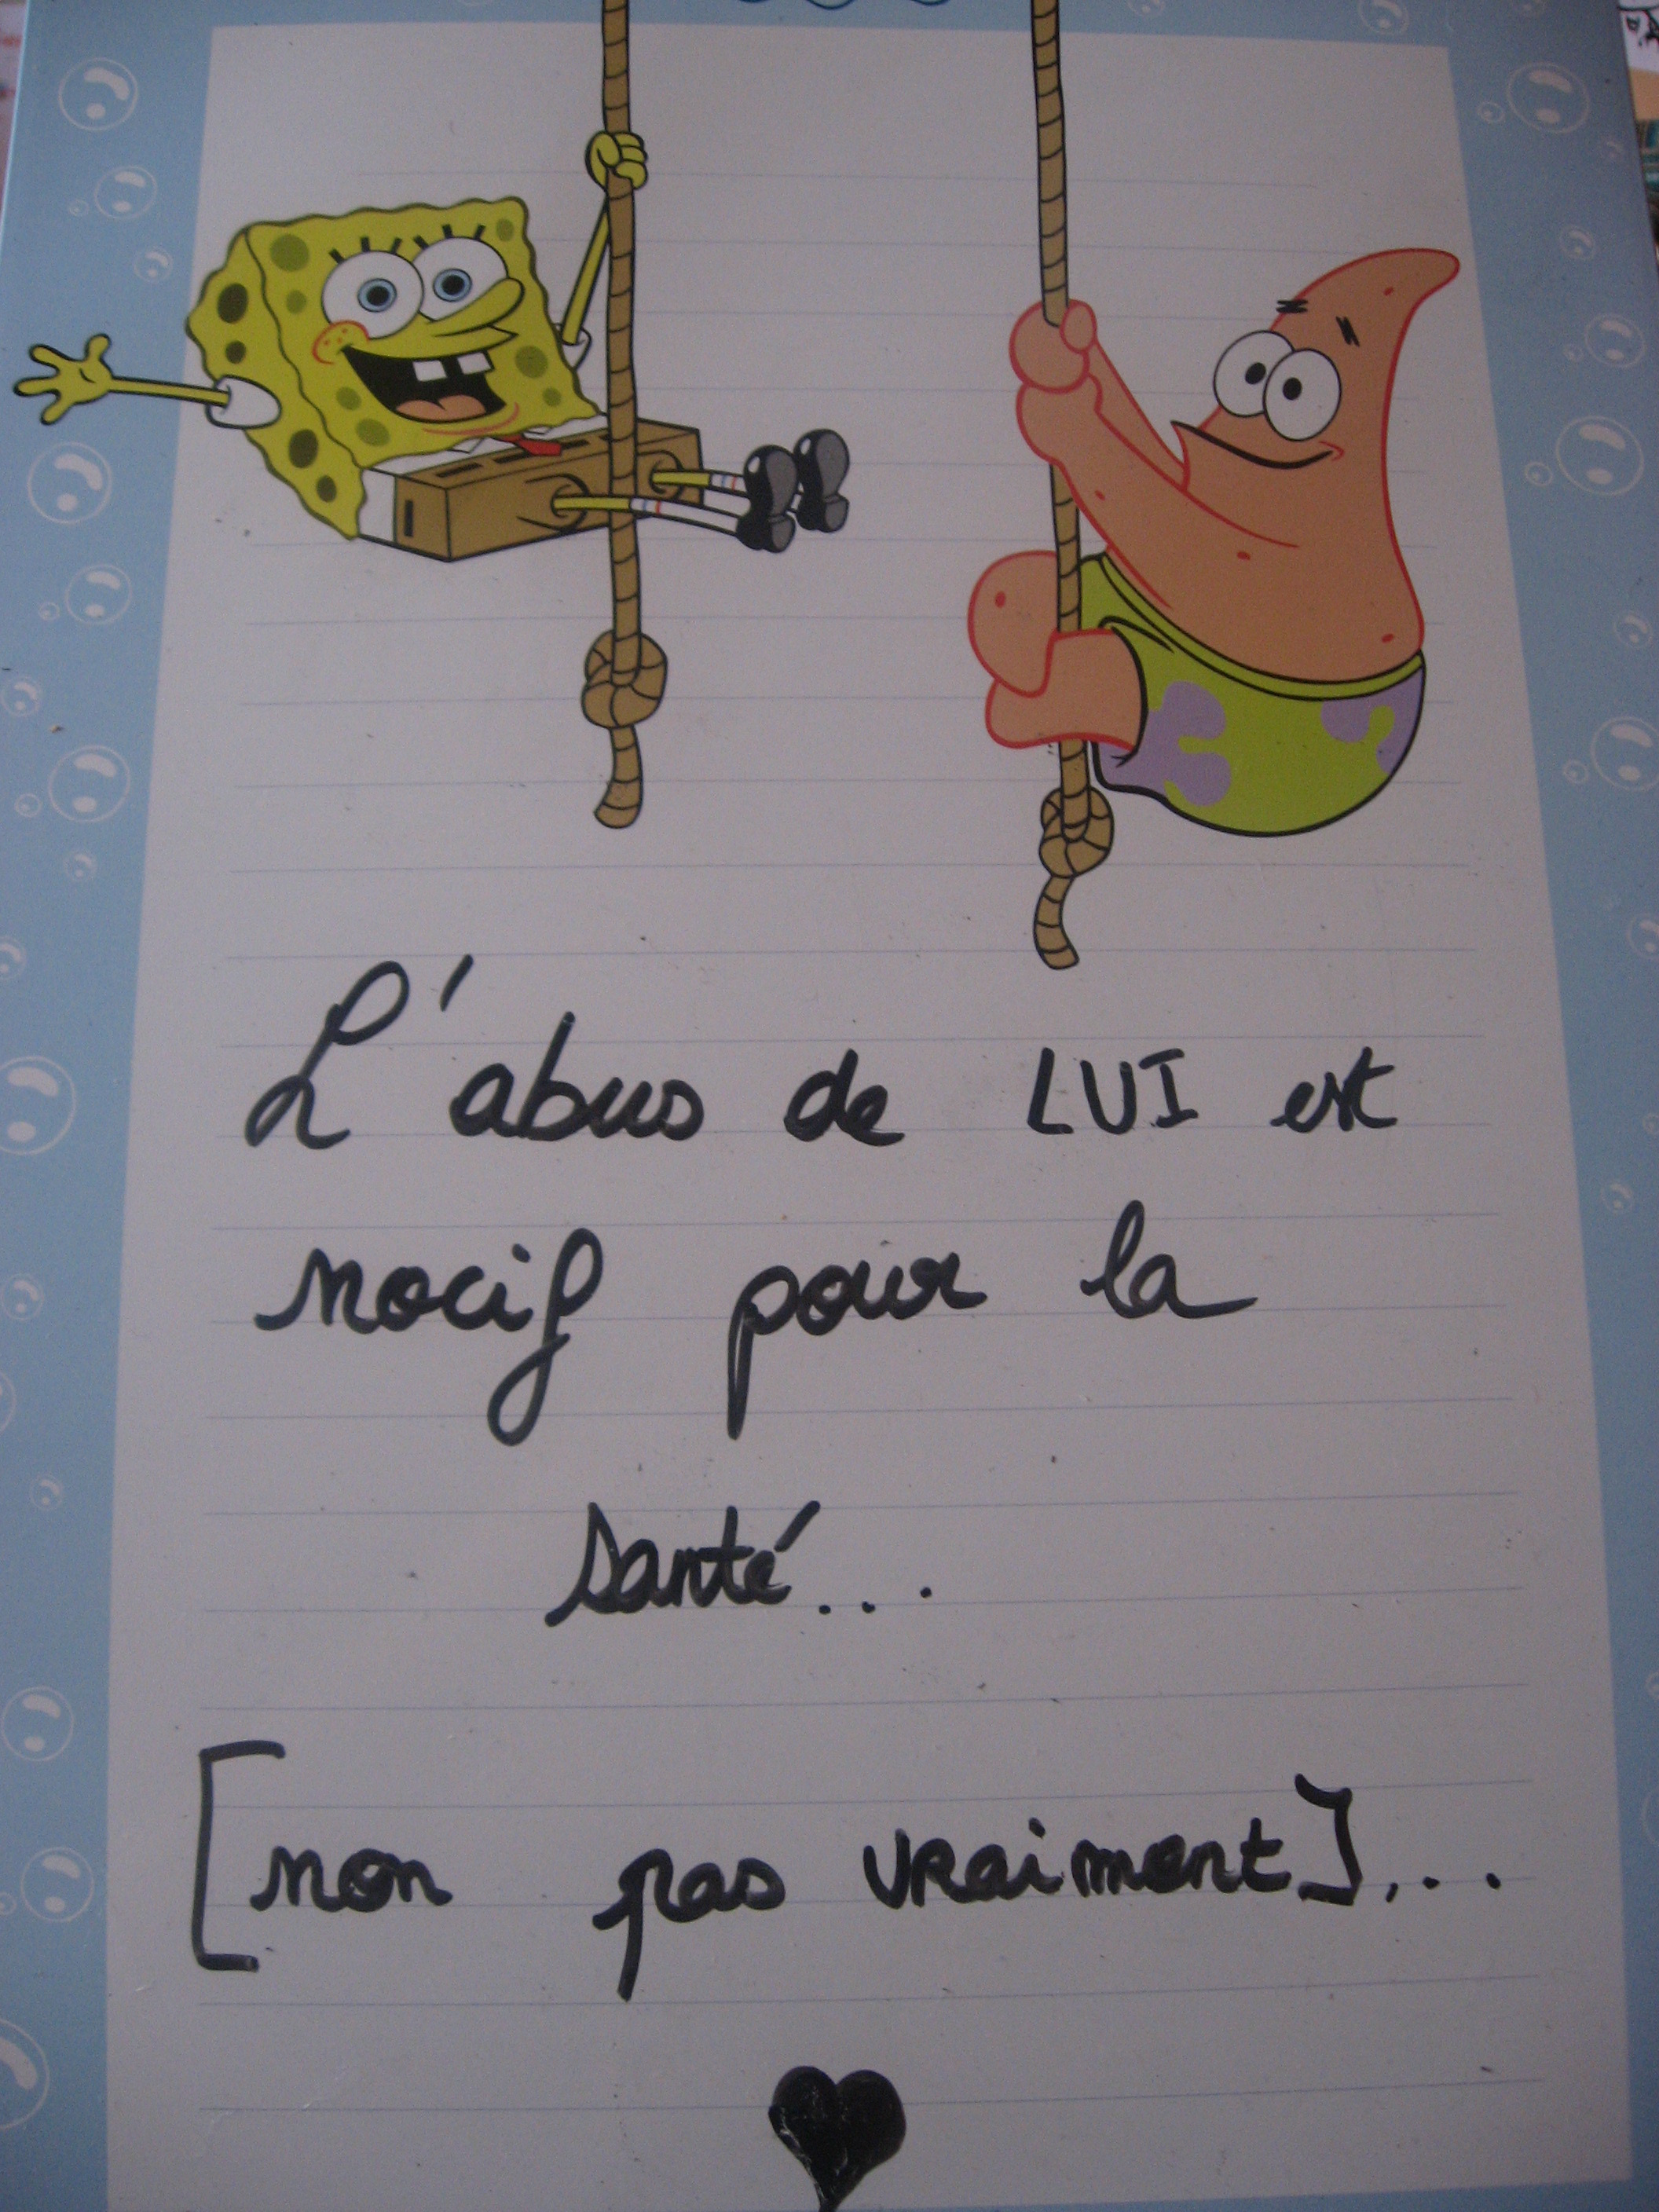 L'abus de LUI est
nocif pour la
santé...
[non pas vraiment]...